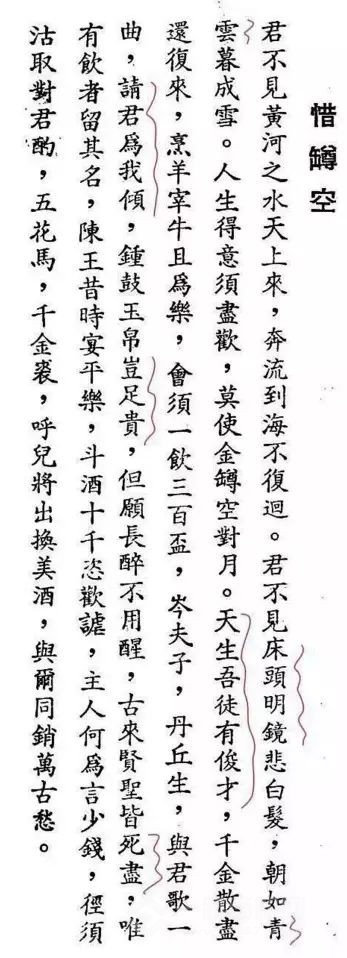 惜罇空
君不見黃河之水天上來，奔流到海不復迴。君不見床頭明鏡悲白髮，朝如青
雲暮成雪。人生得意須盡歡，莫使金罇空對月。天生吾徒有俊才，千金散盡
還復來，烹羊宰牛且爲樂，會須一飲三百盃，岑夫子，丹丘生，與君歌一
曲，請君爲我傾，鍾鼓玉帛豈足貴，但願長醉不用醒，古來賢聖皆死盡，唯
有飲者留其名，陳王昔時宴平樂，斗酒十千恣歡謔，主人何爲言少錢，徑須
沽取對君酌，五花馬，千金裘，呼兒將出換美酒，與爾同銷萬古愁。